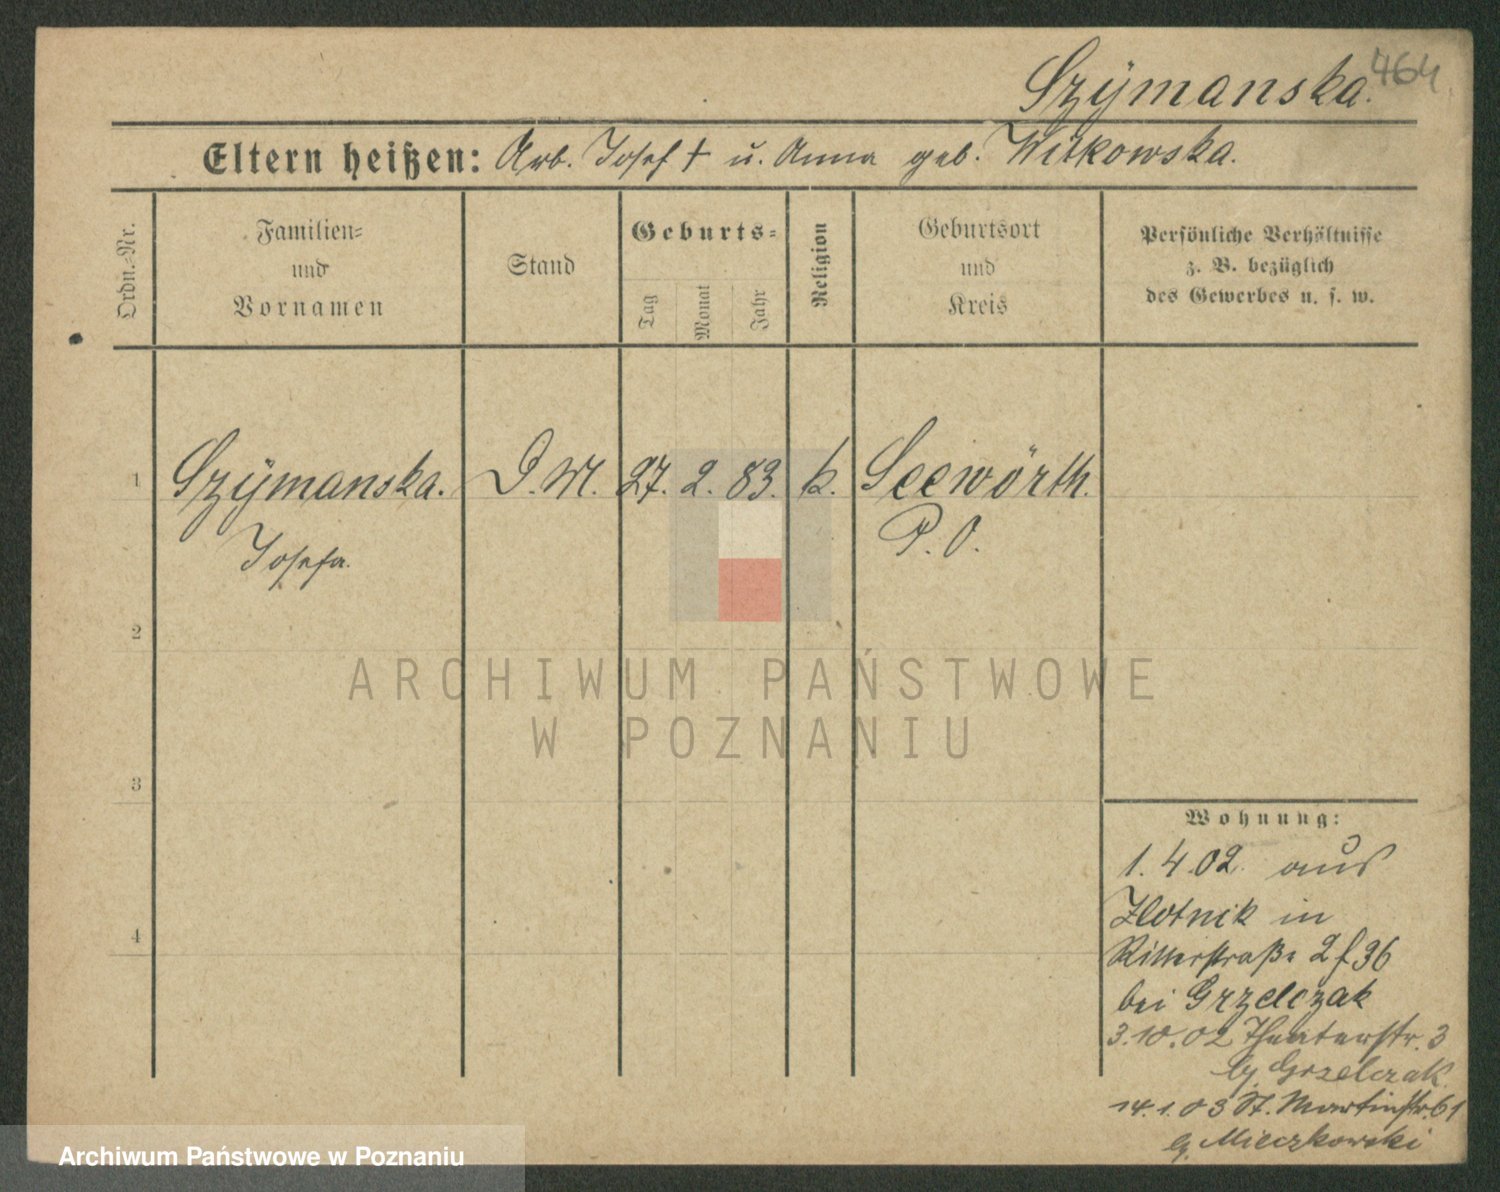 464
Szÿmanska.
Eltern heißen: Arb. Josef † u. Anna geb. Witkowska.
Ordn.=Nr.
Familien=
und
Vornamen
Stand
Geburts=
Tag
Monat
Jahr
Religion
Geburtsort
und
Kreis
Persönliche Verhältnisse
z. B. bezüglich
des Gewerbes u. s. w.
1 Szÿmanska. D. M. 27. 2. 83. k. Seewörth.
Josefa. P. O.
2
3
4
Wohnung:
1.4.02. aus
Zlotnik in
Ritterstraße 2 f 36
bei Grzelczak
3.10.02 Theaterstr. 3
b/ Grzelczak.
14.1.03 St. Martinstr. 61
b/ Mieczkowski
ARCHIWUM PAŃSTWOWE
W POZNANIU
Archiwum Państwowe w Poznaniu